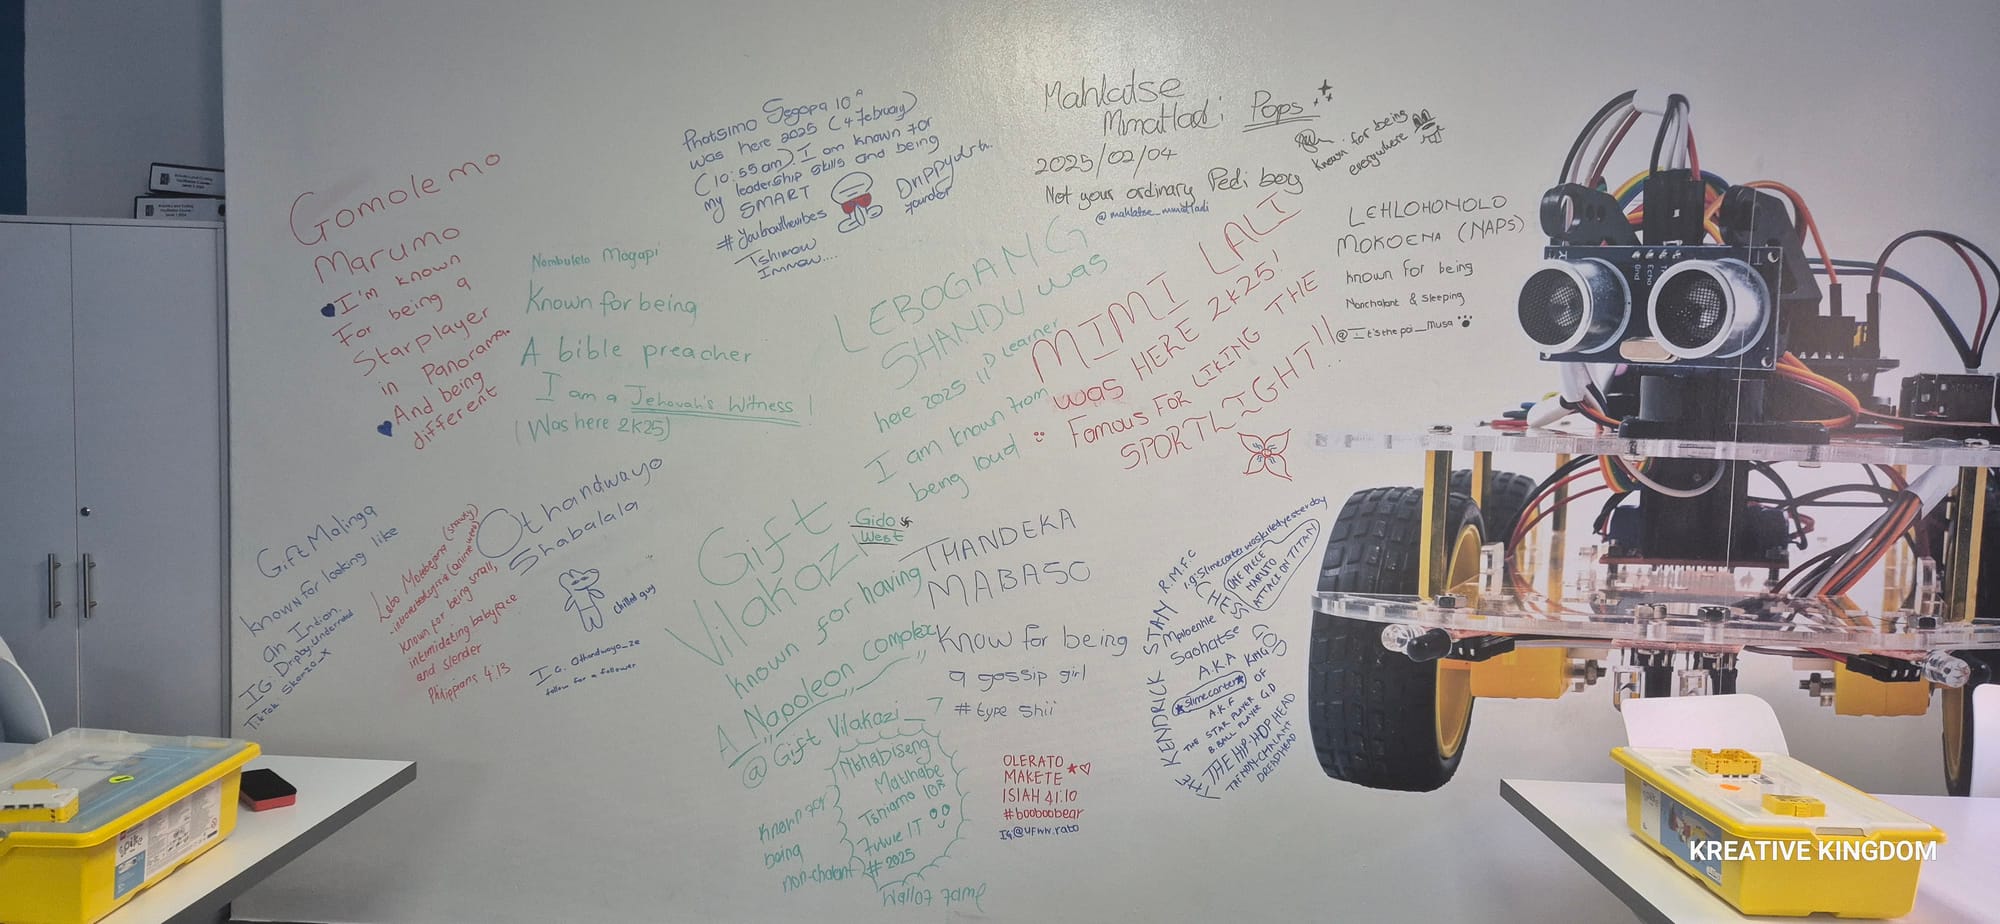 Gomolemo
Marumo
I'm known
For being a
Starplayer
in Panorama.
And being
different
Nombulelo Mogapi
Known for being
A bible preacher
I am a Jehovah's Witness !
(Was here 2K25)
Phatsimo Segopa 10 A
was here 2025 (4 February)
(10:55am). I am known for
my leadership skills and being
SMART
#Youknowthevibes
Tshimow
Immow....
Drippy
founder
Mahlatse
Mmatladi Pops
2025/02/04
Not your ordinary Pedi boy
@mahlatse_mmatladi
Known for being
everywhere
LEHLOHONOLO
MOKOENA (NAPS)
Known for being
Nonchalant & Sleeping
@It'sthepoi_Musa
LEBOGANG
SHANDU was
here 2025 11D Learner
I am known from
being loud
MIMI LALI
was HERE 2K25!
Famous FOR LIKING THE
SPORTLIGHT!!
Gift Malinga
known for looking like
an Indian.
IG: Dripbyundermind
TikTok Skanzo_X
Known for being small,
intimidating babyface
and slender
Philippians 4:13
Othandwayo
Shabalala
chilled guy
I.G. Othandwayo_ze
follow for a follower
Gift
Vilakazi
Gido
West
known for having
A Napoleon complex
@Gift Vilakazi_7
THANDEKA
MABASO
Know for being
a gossip girl
#type shii
Known for
being
non-chalant
Nthabiseng
Matlhabe
Tshiamo 10B
Future IT
#2025
Wall of fame
OLERATO
MAKETE
ISIAH 41.10
#boobooboear
IG@ufwn.rato
R.M.F.C
ig:slimecarterwaskilledyesterday
ONE PIECE
NARUTO
ATTACK ON TITAN
KENDRICK STAN
Saohatse
A.K.A
slimecarter
KING OF
A.K.F
THE STAR PLAYER G.D
B.BALL PLAYER
THE HIP-HOP HEAD
THE NON-CHALANT
DREADHEAD
Echo
Gnd
spike
KREATIVE KINGDOM